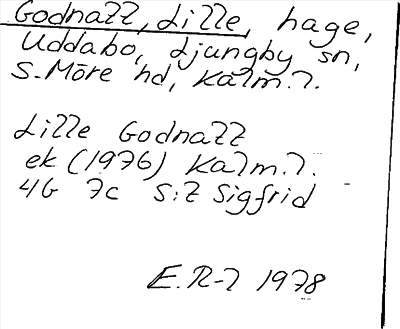 Godnatt, Lille, hage,
Uddabo, Ljungby sn,
S. Möre hd, Kalm.l.
Lille Godnatt
ek (1976) Kalm.l.
4G 7c S:t Sigfrid
E.R-l 1978